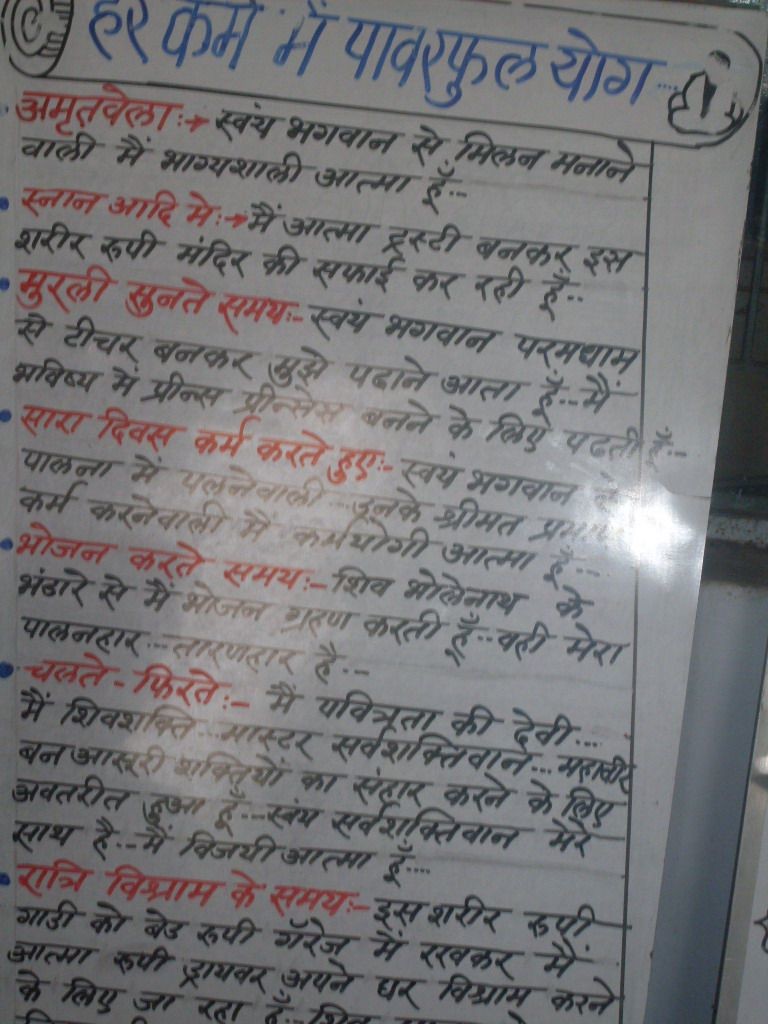 हर कर्म में पावरफुल योग....
अमृतवेला:→ स्वंय भगवान से मिलन मनाने
वाली मैं भाग्यशाली आत्मा हूँ...
स्नान आदि मे:→ मैं आत्मा ट्रस्टी बनकर इस
शरीर रूपी मंदिर की सफाई कर रही हूँ...
मुरली सुनते समय:- स्वयं भगवान परमधाम
से टीचर बनकर मुझे पढाने आता हूँ...मैं
भविष्य में प्रीन्स प्रीन्सेस बनने के लिए पढती हूँ...
सारा दिवस कर्म करते हुए:- स्वयं भगवान
पालना में पलनेवाली...उनके श्रीमत
कर्म करनेवाली मैं कर्मयोगी आत्मा हूँ...
भोजन करते समय:- शिव भोलेनाथ के
भंडारे से मैं भोजन ग्रहण करती हूँ...वही मेरा
पालनहार...तारणहार है...
चलते-फिरते:- मैं पवित्रता की देवी...
मैं शिवशक्ति...मास्टर सर्वशक्तिवान...महावीर
बन आसूरी शक्तियों का संहार करने के लिए
अवतरीत हुआ हूँ...स्वंय सर्वशक्तिवान मेरे
साथ है...मैं विजयी आत्मा हूँ....
रात्रि विश्राम के समय:- इस शरीर रूपी
गाडी को बेड रूपी गॅरेज में रखकर मैं
आत्मा रूपी ड्रायवर अपने घर विश्राम करने
के लिए जा रहा हूँ...शिव